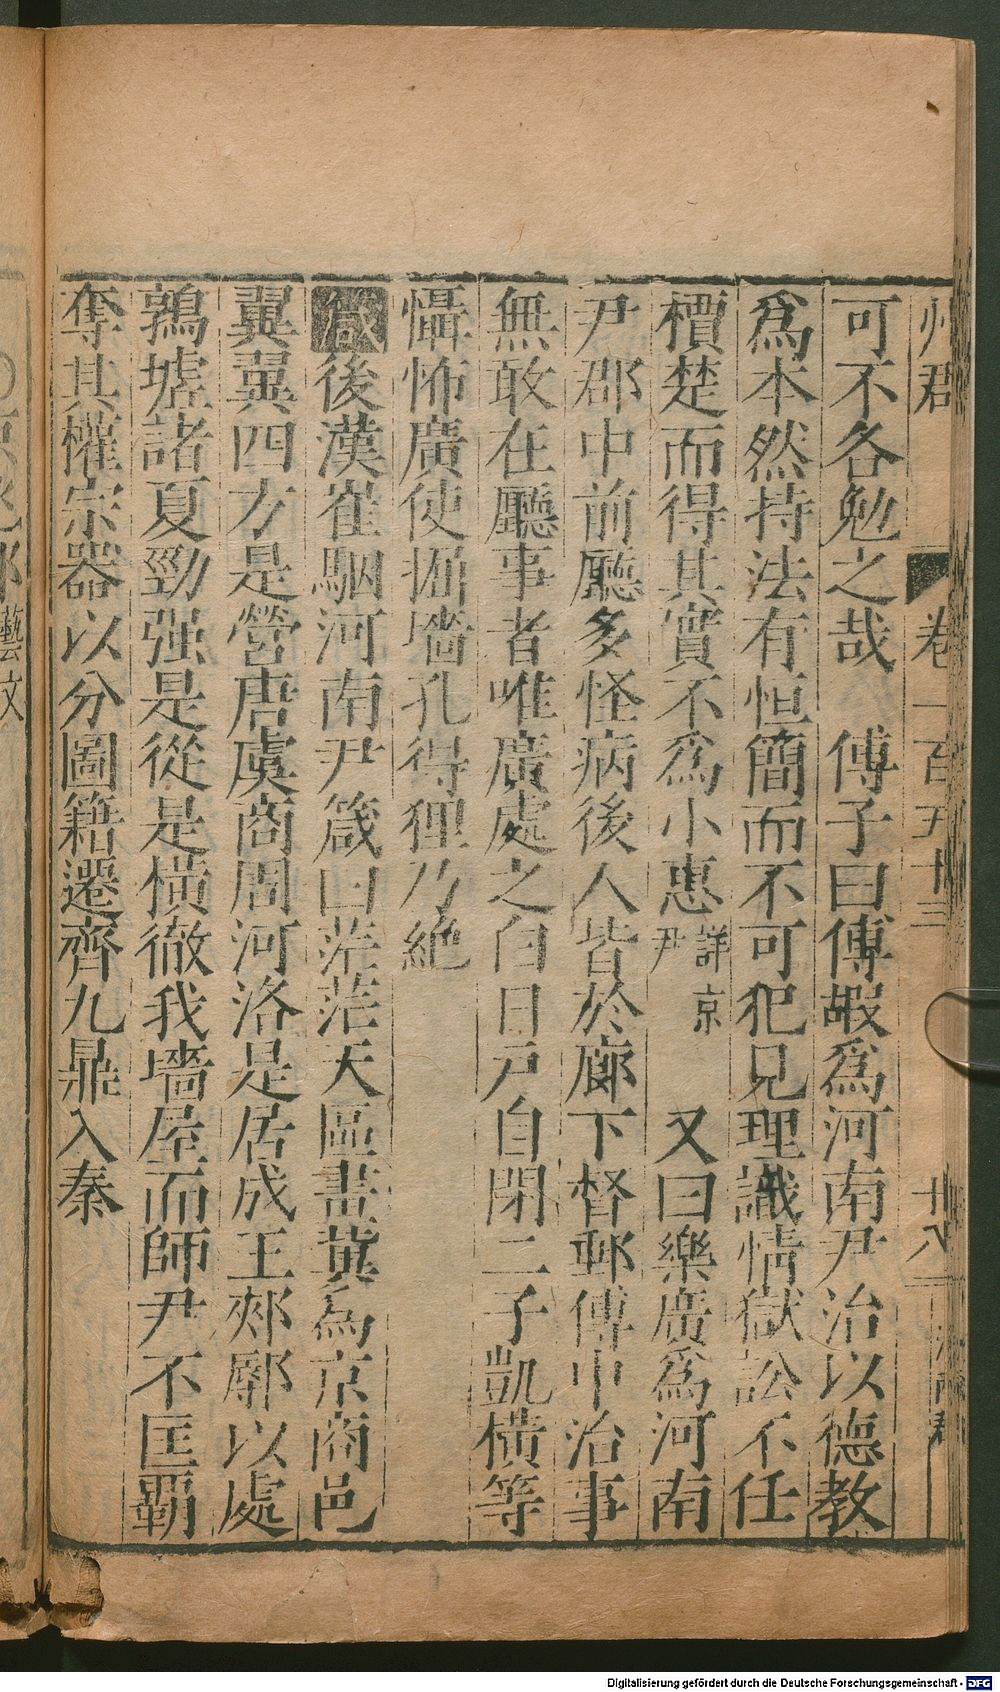 州郡 卷一百五十三 十八
可不各勉之哉 傅子曰傅嘏爲河南尹治以德教
爲本然持法有恒簡而不可犯見理識情獄訟不任
檟楚而得其實不爲小惠詳京尹 又曰樂廣爲河南
尹郡中前廳多怪病後人皆於廊下督郵傅中治事
無敢在廳事者唯廣處之白日戶自閉二子凱横等
懾怖廣使掘墻孔得狸乃絶
箴後漢崔駰河南尹箴曰茫茫天區畫冀為京商邑
翼翼四方是營唐虞商周河洛是居成王郟鄏以處
鶉墟諸夏勁强是從是横徹我墻屋而師尹不匡覇
奪其權宗器以分圖籍遷齊九鼎入秦
藝文
Digitalisierung gefördert durch die Deutsche Forschungsgemeinschaft - DFG